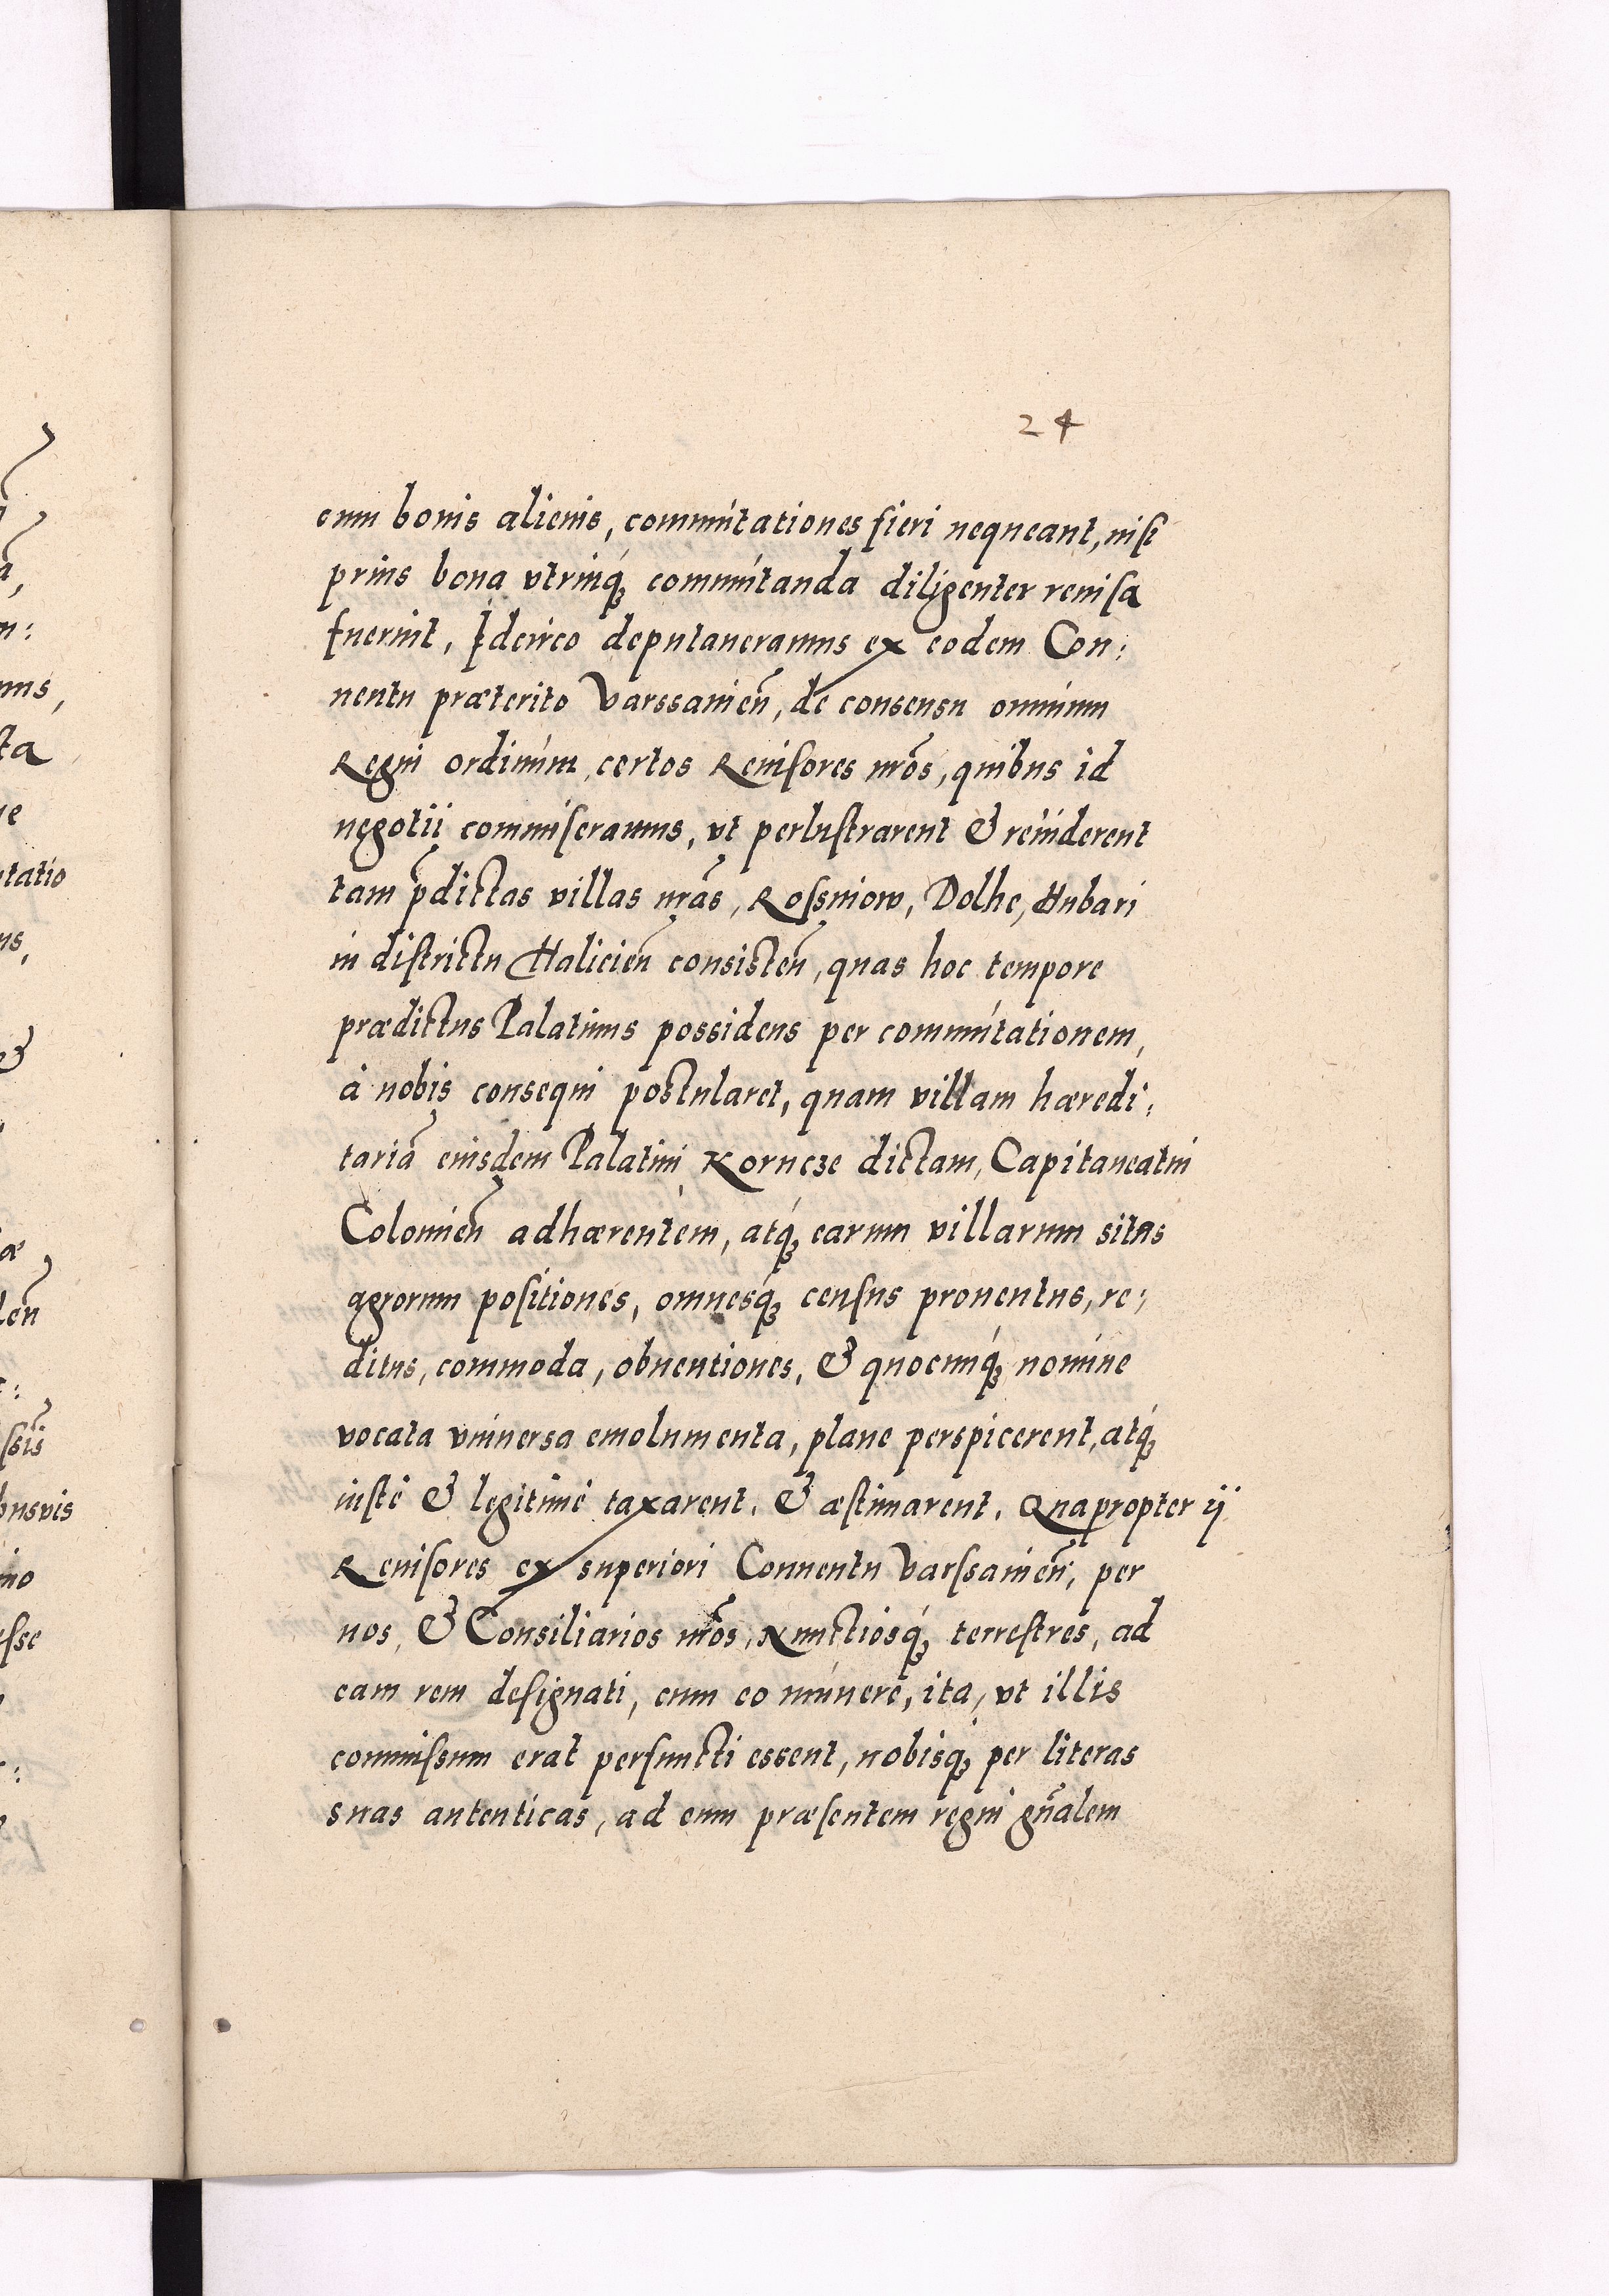 24
cum bonis alienis, commutationes fieri nequeant, nisi
prius bona vtrinq́ꝫ commutanda diligenter reuisa
fuerint, Idcirco deputaueramus ex eodem Con:
uentu præterito Varssauien̄, de consensu omnium
Regni ordinum, certos Reuisores nr̄os, quibus id
negotij commiseramus, vt perlustrarent & reuiderent
tam p̄dictas villas nr̄as, Rossniow, Dolhe, Hubari
in districtu Halicien̄ consisten̄, quas hoc tempore
prædictus Palatinus possidens per commutationem,
à nobis consequi postularet, quam villam hæredi:
tariā eiusdem Palatini, Kornesze dictam, Capitaneatui
Colomien̄ adhærentem, atq́ꝫ earum villarum situs
agrorum positiones, omnesq́ꝫ census prouentus, re:
ditus, commoda, obuentiones, & quocunq́ꝫ nomine
vocata vniuersa emolumenta, plane perspicerent, atq́ꝫ
iustè & legitimè taxarent, & æstimarent. Quapropter ij
Reuisores ex superiori Conuentu Varssauien̄, per
nos, & Consiliarios nr̄os, Nunctiosq́ꝫ terrestres, ad
eam rem designati, cum eo munere, ita, vt illis
commissum erat perfuncti essent, nobisq́ꝫ per literas
suas autenticas, ad cum præsentem regni gn̄alem